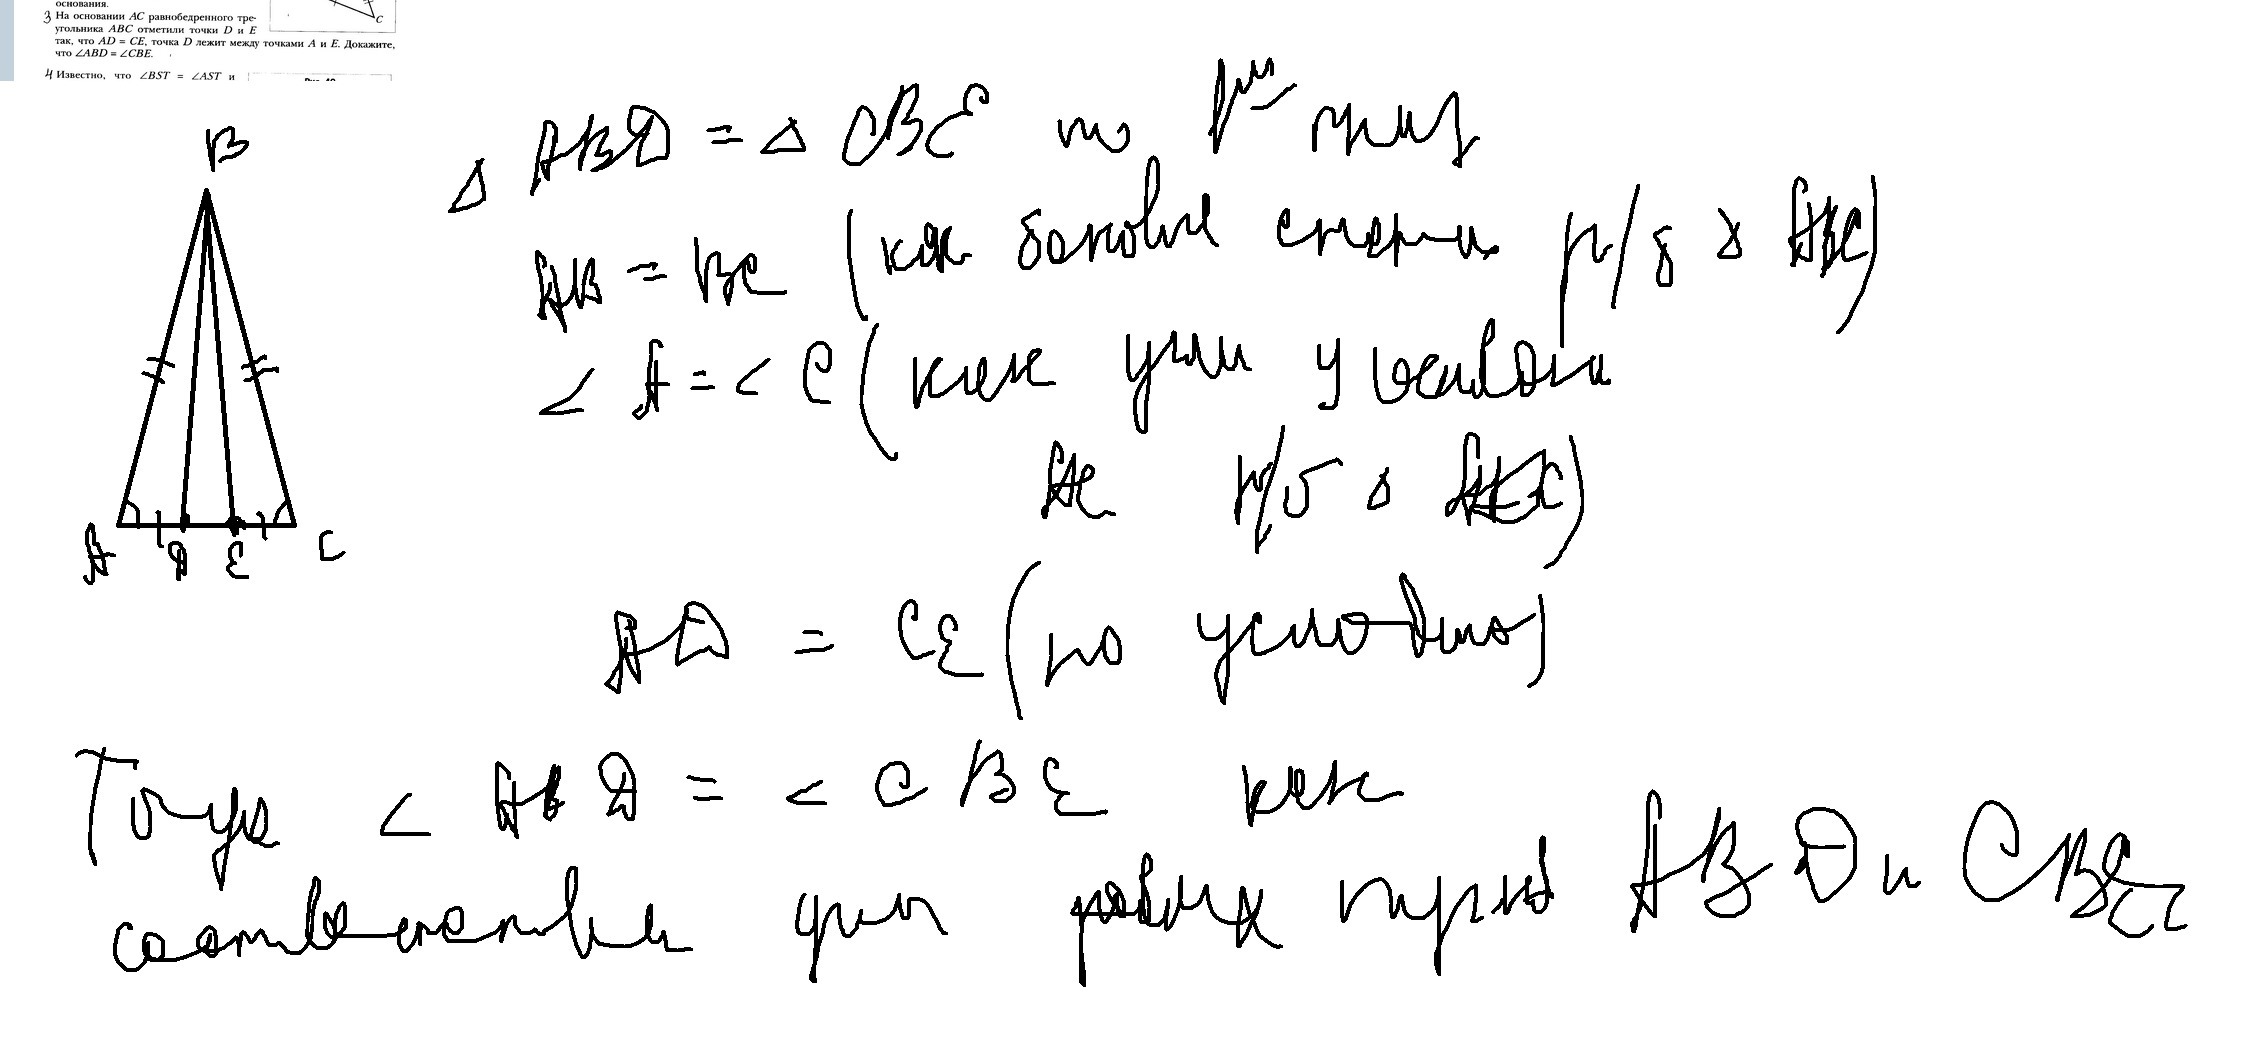 основания.
C
3 На основании AC равнобедренного тре-
угольника ABC отметили точки D и E
так, что AD = CE, точка D лежит между точками A и E. Докажите,
что ∠ABD = ∠CBE.
4 Известно, что ∠BST = ∠AST и
B
A D E C
Δ ABD = Δ CBE по I
AB = BC (как боковые стороны р/б Δ ABC)
∠ A = ∠ C (как углы у основания
AC р/б Δ ABC)
AD = CE (по условию)
Тогда ∠ ABD = ∠ CBE как
соответственные углы равных ABD и CBE